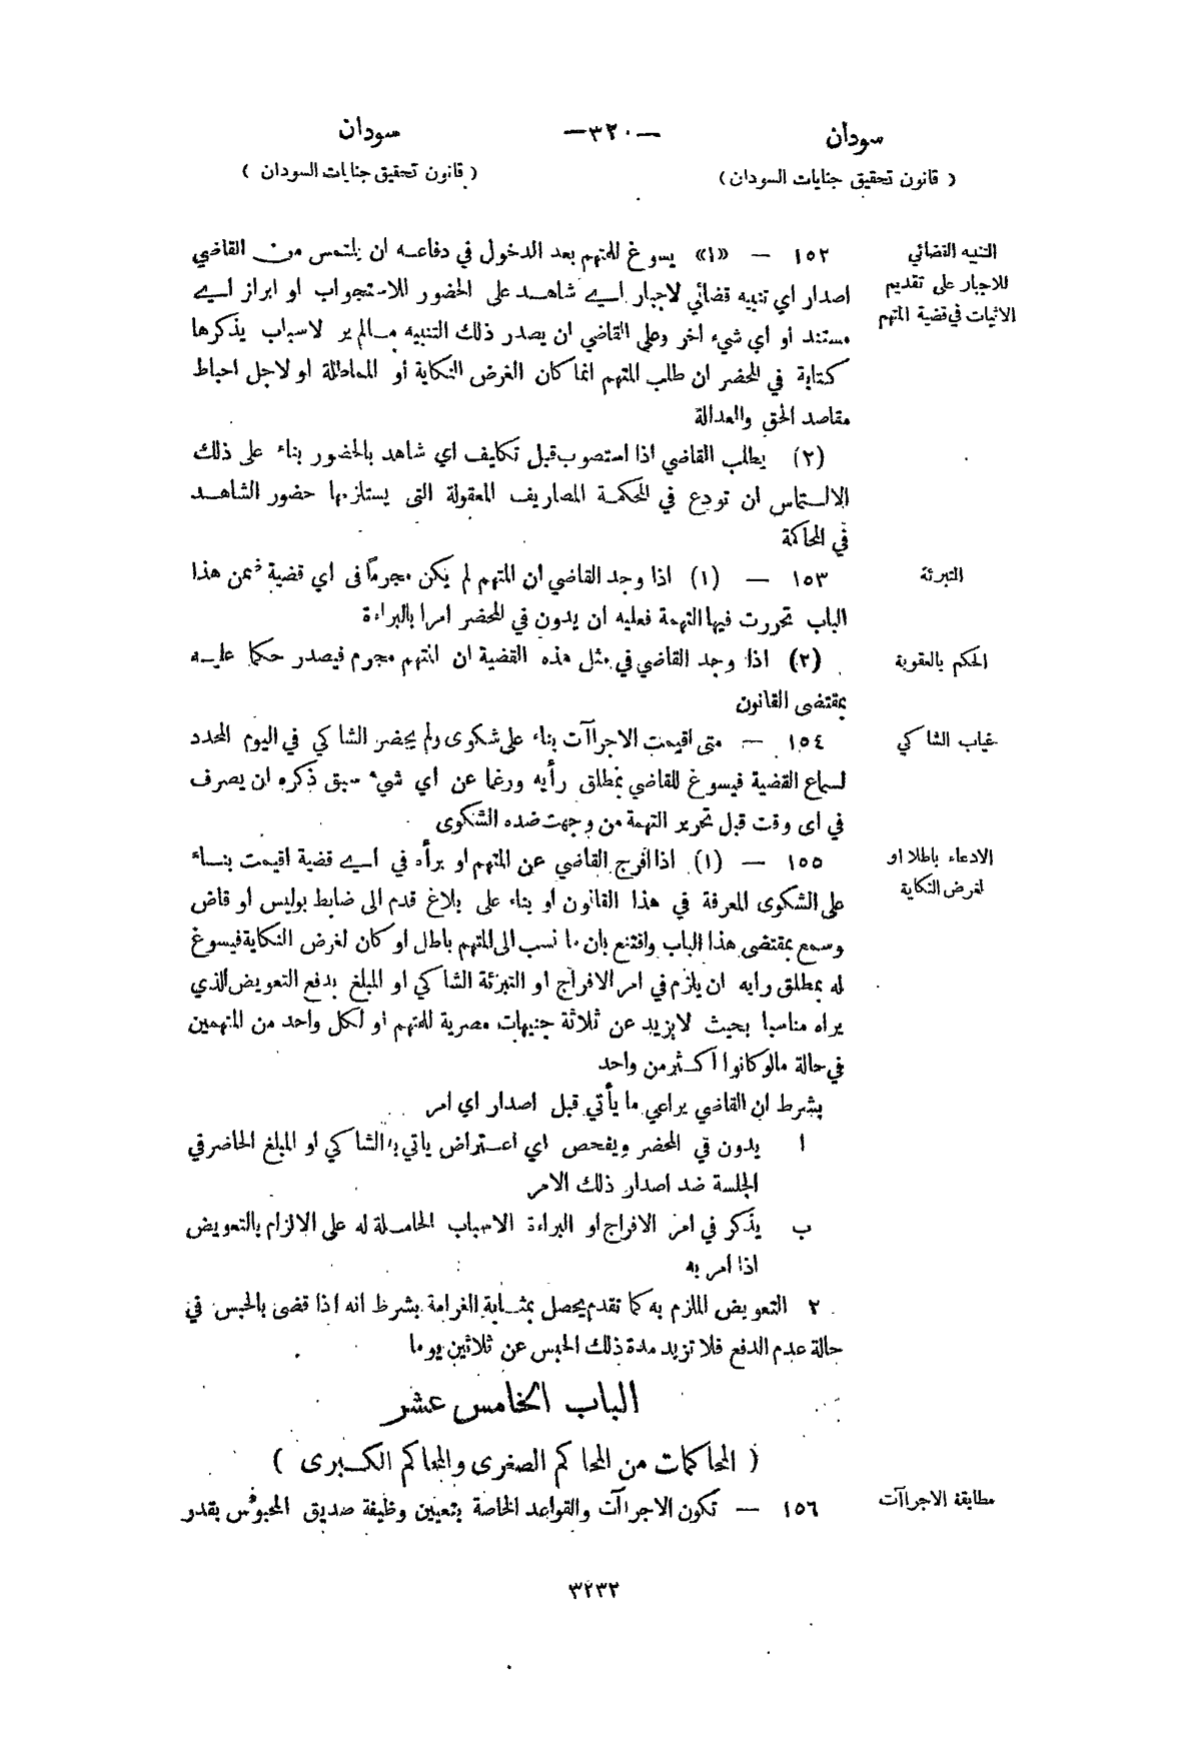 سودان
—٣٢٠—
سودان
( قانون تحقيق جنايات السودان )
( قانون تحقيق جنايات السودان )
التنبيه القضائي
للاجبار على تقديم
الاثبات في قضية المتهم
١٥٢ — «١» يسوغ للمتهم بعد الدخول في دفاعه ان يلتمس من القاضي
اصدار اي تنبيه قضائي لاجبار اي شاهد على الحضور للاستجواب او ابراز اي
مستند او أي شيء اخر وعلى القاضي ان يصدر ذلك التنبيه مالم ير لاسباب يذكرها
كتابة في المحضر ان طلب المتهم انما كان الغرض النكاية أو المماطلة او لاجل احباط
مقاصد الحق والعدالة
(٢) يطلب القاضي اذا استصوب قبل تكليف اي شاهد بالحضور بناء على ذلك
الالتماس ان تودع في المحكمة المصاريف المعقولة التى يستلزمها حضور الشاهد
في المحاكمة
التبرئة
١٥٣ — (١) اذا وجد القاضي ان المتهم لم يكن مجرماً فى اي قضية ضمن هذا
الباب تحررت فيها التهمة فعليه ان يدون في المحضر امرا بالبراءة
الحكم بالعقوبة
(٢) اذا وجد القاضي في مثل هذه القضية ان المتهم مجرم فيصدر حكما عليه
بمقتضى القانون
غياب الشاكي
١٥٤ — متى اقيمت الاجراآت بناء على شكوى ولم يحضر الشاكي في اليوم المحدد
لسماع القضية فيسوغ للقاضي بمطلق رأيه ورغما عن اي شيء سبق ذكره ان يصرف
في اى وقت قبل تحرير التهمة من وجهت ضده الشكوى
الادعاء باطلا او
لغرض النكاية
١٥٥ — (١) اذا أفرج القاضي عن المتهم او برأه في اي قضية اقيمت بناء
على الشكوى المعرفة في هذا القانون او بناء على بلاغ قدم الى ضابط بوليس او قاض
وسمع بمقتضى هذا الباب واقتنع بان ما نسب الى المتهم باطل او كان لغرض النكاية فيسوغ
له بمطلق رايه ان يلزم في امر الافراج او التبرئة الشاكي او المبلغ بدفع التعويض الذي
يراه مناسبا بحيث لا يزيد عن ثلاثة جنيهات مصرية للمتهم او لكل واحد من المتهمين
في حالة مالو كانوا اكثر من واحد
بشرط ان القاضي يراعي ما يأتي قبل اصدار اي امر
ا يدون في المحضر ويفحص اي اعتراض ياتي به الشاكي او المبلغ الحاضر في
الجلسة ضد اصدار ذلك الامر
ب يذكر في امر الافراج او البراءة الاسباب الحاملة له على الالزام بالتعويض
اذا امر به
٢ التعويض الملزم به كما تقدم يحصل بمثابة الغرامة بشرط انه اذا قضى بالحبس في
حالة عدم الدفع فلا تزيد مدة ذلك الحبس عن ثلاثين يوما
الباب الخامس عشر
( المحاكمات من المحاكم الصغرى والمحاكم الكبرى )
مطابقة الاجراآت
١٥٦ — تكون الاجراآت والقواعد الخاصة بتعيين وظيفة صديق المحبوس بقدر
٣٢٣٢